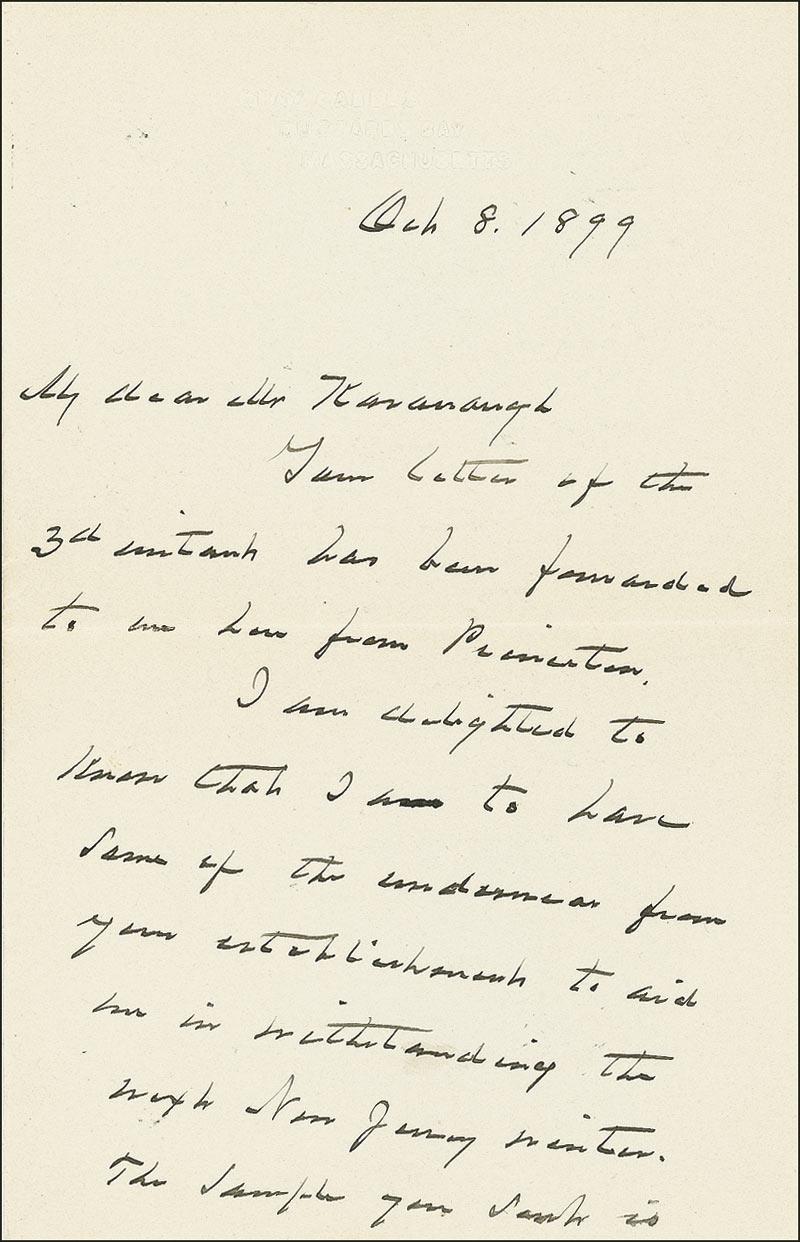 GRAY GABLES
BUZZARDS BAY
MASSACHUSETTS
Oct 8. 1899
My dear Mr Kavanaugh
Your letter of the
3rd instant has been forwarded
to me here from Princeton.
I am delighted to
know that I am to have
some of the underwear from
your establishment to aid
me in withstanding the
next New Jersey winter.
The sample you sent is